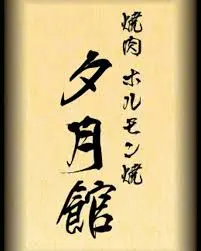 焼肉 ホルモン焼
夕月館